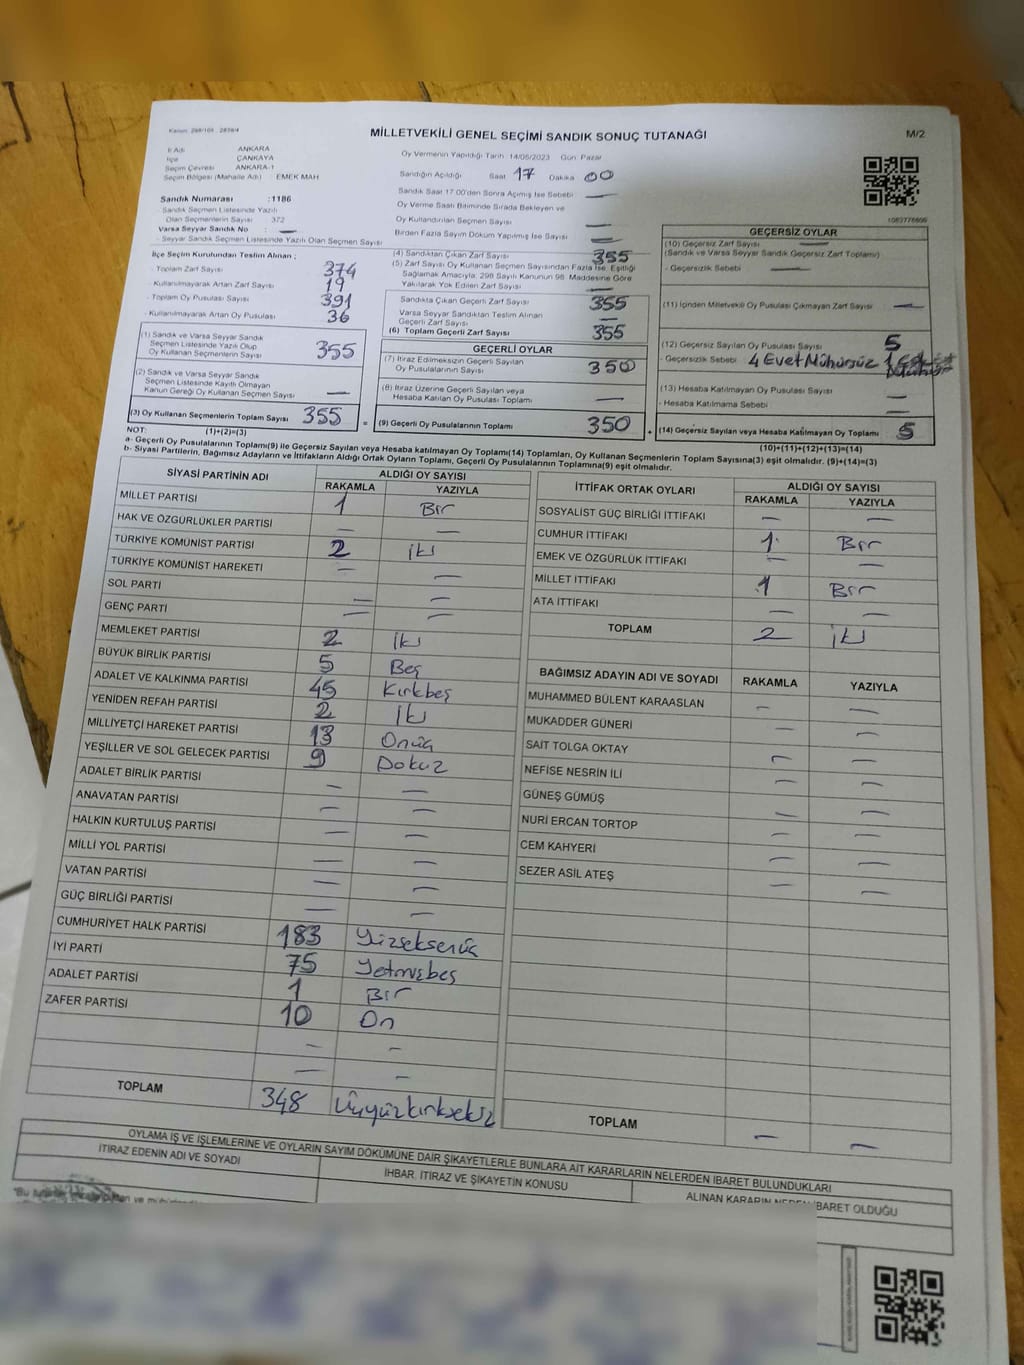 Kanun: 298/105 2839/4
MİLLETVEKİLİ GENEL SEÇİMİ SANDIK SONUÇ TUTANAĞI
M/2
İl Adı ANKARA
İlçe ÇANKAYA
Seçim Çevresi ANKARA-1
Seçim Bölgesi (Mahalle Adı) : EMEK MAH
Sandık Numarası :1186
- Sandık Seçmen Listesinde Yazılı
Olan Seçmenlerin Sayısı 372
Varsa Seyyar Sandık No : —
- Seyyar Sandık Seçmen Listesinde Yazılı Olan Seçmen Sayısı
Oy Vermenin Yapıldığı Tarih 14/05/2023 Gün Pazar
Sandığın Açıldığı Saat 17 Dakika 00
Sandık Saat 17:00'den Sonra Açılmış İse Sebebi —
Oy Verme Saati Bitiminde Sırada Bekleyen ve
Oy Kullandırılan Seçmen Sayısı —
Birden Fazla Sayım Döküm Yapılmış İse Sayısı —
İlçe Seçim Kurulundan Teslim Alınan ;
- Toplam Zarf Sayısı 374
- Kullanılmayarak Artan Zarf Sayısı 19
- Toplam Oy Pusulası Sayısı 391
- Kullanılmayarak Artan Oy Pusulası 36
(1) Sandık ve Varsa Seyyar Sandık
Seçmen Listesinde Yazılı Olup
Oy Kullanan Seçmenlerin Sayısı 355
(2) Sandık ve Varsa Seyyar Sandık
Seçmen Listesinde Kayıtlı Olmayan
Kanun Gereği Oy Kullanan Seçmen Sayısı —
(3) Oy Kullanan Seçmenlerin Toplam Sayısı 355
(4) Sandıktan Çıkan Zarf Sayısı 355
(5) Zarf Sayısı Oy Kullanan Seçmen Sayısından Fazla İse, Eşitliği
Sağlamak Amacıyla; 298 Sayılı Kanunun 98. Maddesine Göre
Yakılarak Yok Edilen Zarf Sayısı —
Sandıkta Çıkan Geçerli Zarf Sayısı 355
Varsa Seyyar Sandıktan Teslim Alınan
Geçerli Zarf Sayısı —
(6) Toplam Geçerli Zarf Sayısı 355
GEÇERLİ OYLAR
(7) İtiraz Edilmeksizin Geçerli Sayılan
Oy Pusulalarının Sayısı 350
(8) İtiraz Üzerine Geçerli Sayılan veya
Hesaba Katılan Oy Pusulası Toplamı —
= (9) Geçerli Oy Pusulalarının Toplamı 350
1082778609
GEÇERSİZ OYLAR
(10) Geçersiz Zarf Sayısı —
(Sandık ve Varsa Sandık Geçersiz Zarf Toplamı)
- Geçersizlik Sebebi —
(11) İçinden Milletvekili Oy Pusulası Çıkmayan Zarf Sayısı —
(12) Geçersiz Sayılan Oy Pusulası Sayısı 5
- Geçersizlik Sebebi 4 Evet Mühürsüz 1
(13) Hesaba Katılmayan Oy Pusulası Sayısı —
- Hesaba Katılmama Sebebi —
+ (14) Geçersiz Sayılan veya Hesaba Katılmayan Oy Toplamı 5
NOT: (1)+(2)=(3)
(10)+(11)+(12)+(13)=(14)
a- Geçerli Oy Pusulalarının Toplamı(9) ile Geçersiz Sayılan veya Hesaba katılmayan Oy Toplamı(14) Toplamları, Oy Kullanan Seçmenlerin Toplam Sayısına(3) eşit olmalıdır. (9)+(14)=(3)
b- Siyasi Partilerin, Bağımsız Adayların ve İttifakların Aldığı Ortak Oyların Toplamı, Geçerli Oy Pusulalarının Toplamına(9) eşit olmalıdır.
SİYASİ PARTİNİN ADI ALDIĞI OY SAYISI
RAKAMLA YAZIYLA
MİLLET PARTİSİ 1 Bir
HAK VE ÖZGÜRLÜKLER PARTİSİ — —
TÜRKİYE KOMÜNİST PARTİSİ 2 iki
TÜRKİYE KOMÜNİST HAREKETİ — —
SOL PARTİ — —
GENÇ PARTİ — —
MEMLEKET PARTİSİ 2 iki
BÜYÜK BİRLİK PARTİSİ 5 Beş
ADALET VE KALKINMA PARTİSİ 45 Kırkbeş
YENİDEN REFAH PARTİSİ 2 İki
MİLLİYETÇİ HAREKET PARTİSİ 13 Onüç
YEŞİLLER VE SOL GELECEK PARTİSİ 9 Dokuz
ADALET BİRLİK PARTİSİ — —
ANAVATAN PARTİSİ — —
HALKIN KURTULUŞ PARTİSİ — —
MİLLİ YOL PARTİSİ — —
VATAN PARTİSİ — —
GÜÇ BİRLİĞİ PARTİSİ — —
CUMHURİYET HALK PARTİSİ 183 Yüzseksenüç
İYİ PARTİ 75 Yetmişbeş
ADALET PARTİSİ 1 Bir
ZAFER PARTİSİ 10 On
— —
— —
TOPLAM 348 Üçyüzkırksekiz
İTTİFAK ORTAK OYLARI ALDIĞI OY SAYISI
RAKAMLA YAZIYLA
SOSYALİST GÜÇ BİRLİĞİ İTTİFAKI — —
CUMHUR İTTİFAKI 1 Bir
EMEK VE ÖZGÜRLÜK İTTİFAKI — —
MİLLET İTTİFAKI 1 Bir
ATA İTTİFAKI — —
TOPLAM 2 iki
BAĞIMSIZ ADAYIN ADI VE SOYADI RAKAMLA YAZIYLA
MUHAMMED BÜLENT KARAASLAN — —
MUKADDER GÜNERİ — —
SAİT TOLGA OKTAY — —
NEFİSE NESRİN İLİ — —
GÜNEŞ GÜMÜŞ — —
NURİ ERCAN TORTOP — —
CEM KAHYERİ — —
SEZER ASİL ATEŞ — —
TOPLAM — —
OYLAMA İŞ VE İŞLEMLERİNE VE OYLARIN SAYIM DÖKÜMÜNE DAİR ŞİKAYETLERLE BUNLARA AİT KARARLARIN NELERDEN İBARET BULUNDUKLARI
İTİRAZ EDENİN ADI VE SOYADI
İHBAR, İTİRAZ VE ŞİKAYETİN KONUSU
ALINAN KARARIN NEDEN İBARET OLDUĞU